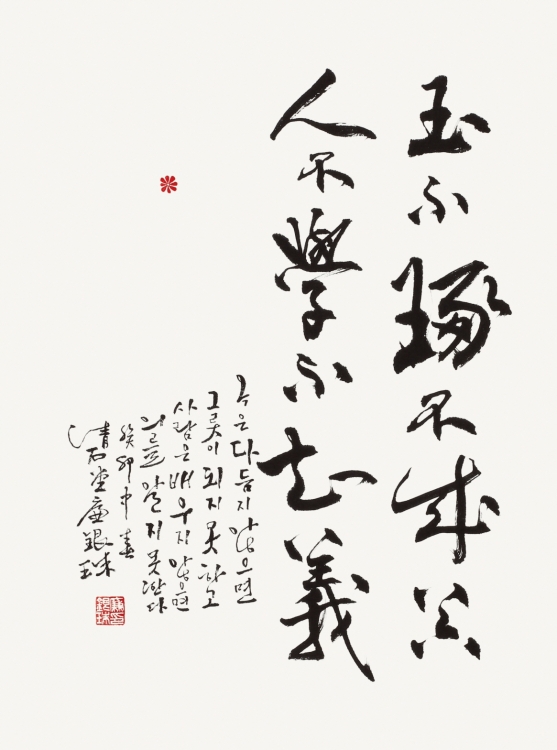 玉不琢不成器
人不學不知義
옥은 다듬지 않으면
그릇이 되지 못하고
사람은 배우지 않으면
의를 알지 못한다
癸卯中春
清石堂廉銀珠